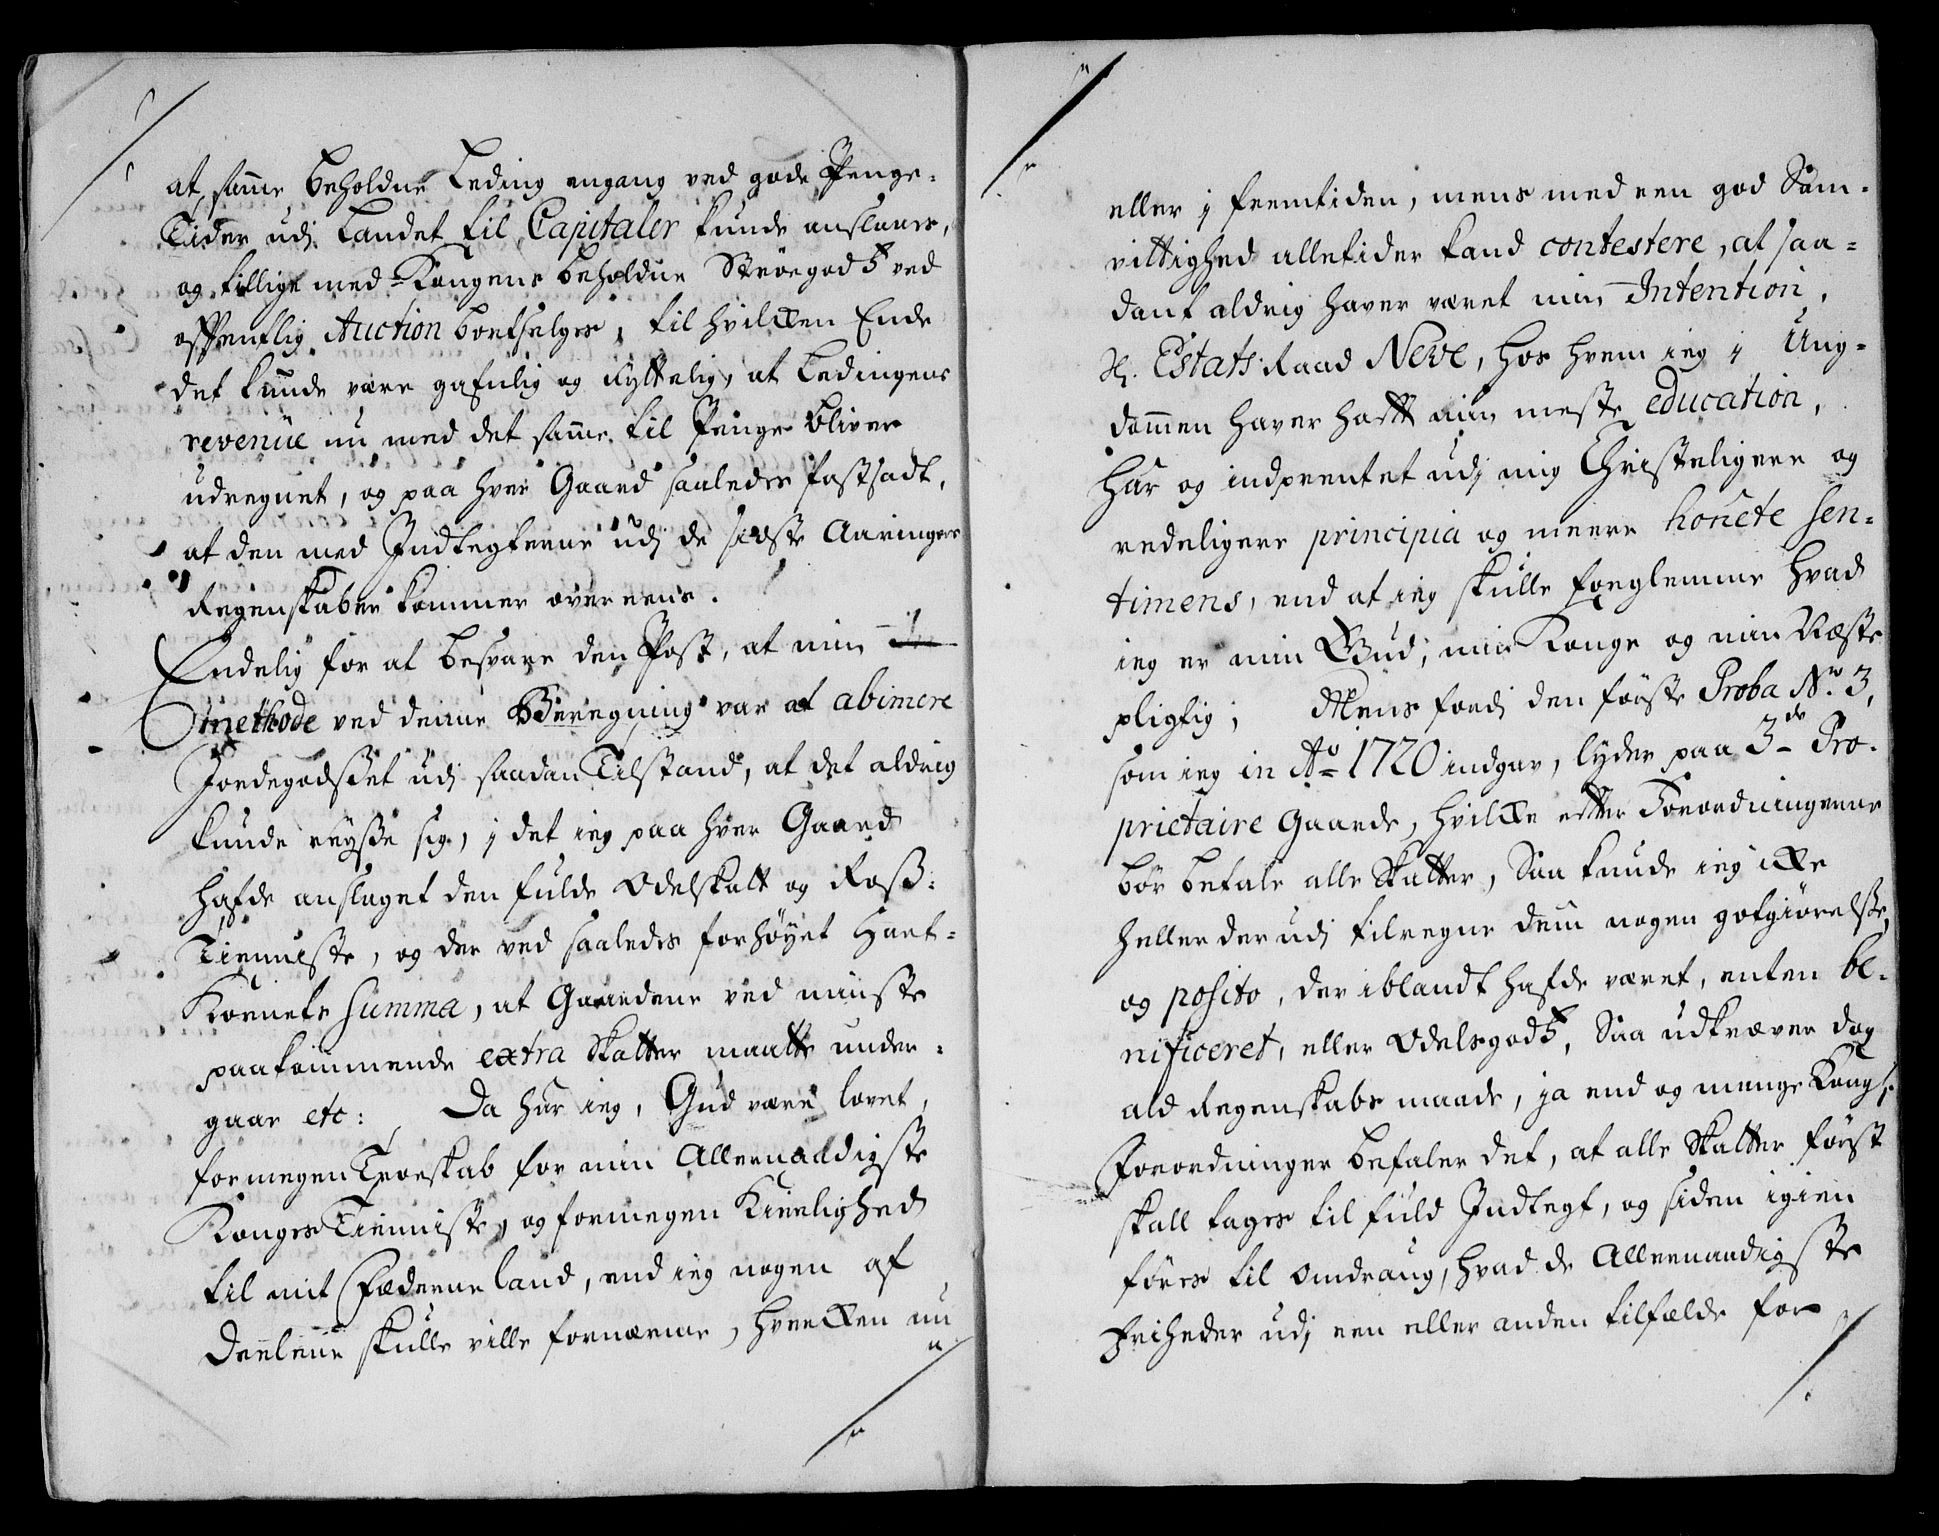 at samme beholdne Leding engang ved gode Penge-
Tider udj Landet til Capitaler kunde anslaaes,
og tillige med Kongens beholdne Strøegods ved
offentlig Auction bortselges, til hvilken Ende
det kunde være gafnlig og nyttelig, at Ledingens
revenüe nu med det samme til Penge bliver
udregnet, og paa hver Gaard saaledes fastsadt,
at den med Indtegterne udj de sidste Aaringers
Regenskaber kommer overeens.
Endelig for at besvare den Post, at min
methode ved denne Beregning var at abimere
Jordegodset udj saadan Tilstand, at det aldrig
kunde reysse sig, j det jeg paa hver Gaard
hafde anslaget den fulde Odelskatt og Ross-
Tienniste, og der ved saaledes forhøyet Hart-
Kornets Summa, at Gaardene ved minste
paakommende extra Skatter maatte under-
gaae etc: Da har jeg, Gud være lovet,
formegen Troeskab for min Allernaadigste
Konges Tienniste, og formegen Kierlighed
til mit Fæderneland, end jeg nogen af
Deelene skulle ville fornærme, hverken nu
eller j fremtiden, mens med een god Sam-
vittighed alletider kand contestere, at saa-
dant aldrig haver været min Intention,
Hr. Estats Raad Neve, hos hvem jeg j Ung-
dommen haver hafft min meste education,
har og indprentet udj mig Christeligere og
redeligere principia og meere honete sen-
timens, end at jeg skulle forglemme hvad
jeg er min Gud, min Konge og min Næste
pligtig; Mens fordj den første Proba No. 3,
som jeg in Ao 1720 indgav, lyder paa 3de Pro-
prietaire Gaarde, hvilke efter Forordningerne
bør betale alle Skatter, Saa kunde jeg icke
heller der udj tilregne dem nogen gotgiørelse,
og posito, der iblandt hafde været, enten be-
nificeret, eller Odelsgods, Saa udkræver dog
ald Regenskabs maade, ja end og mange Kongl:
Forordninger befaler det, at alle Skatter først
skall tages til fuld Indtegt, og siden igien
føres til omdrang, hvad de Allernaadigste
Friheder udj een eller anden tilfælde for